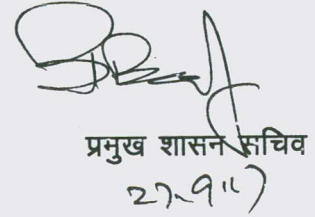 प्रमुख शासन सचिव
27-9-17